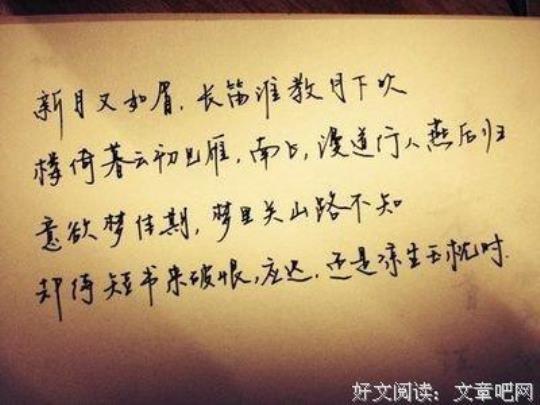 新月又如眉,长笛谁教月下吹
楼倚暮云初见雁,南飞,漫道行人雁后归
意欲梦佳期,梦里关山路不知
却待短书来破恨,应迟,还是凉生玉枕时.
好文阅读:文章吧网